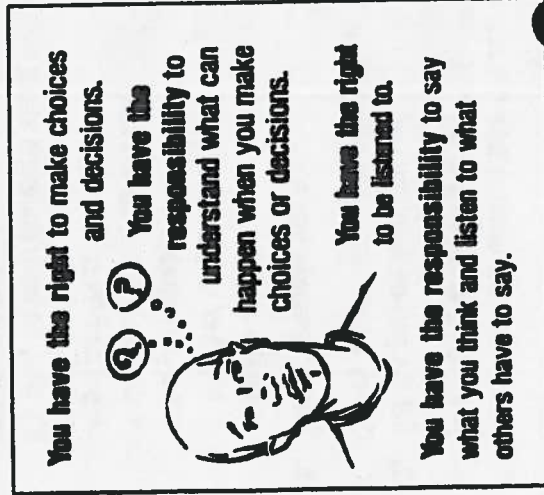 You have the right to make choices
and decisions.
? ?
You have the
responsibility to
understand what can
happen when you make
choices or decisions.
You have the right
to be listened to.
You have the responsibility to say
what you think and listen to what
others have to say.